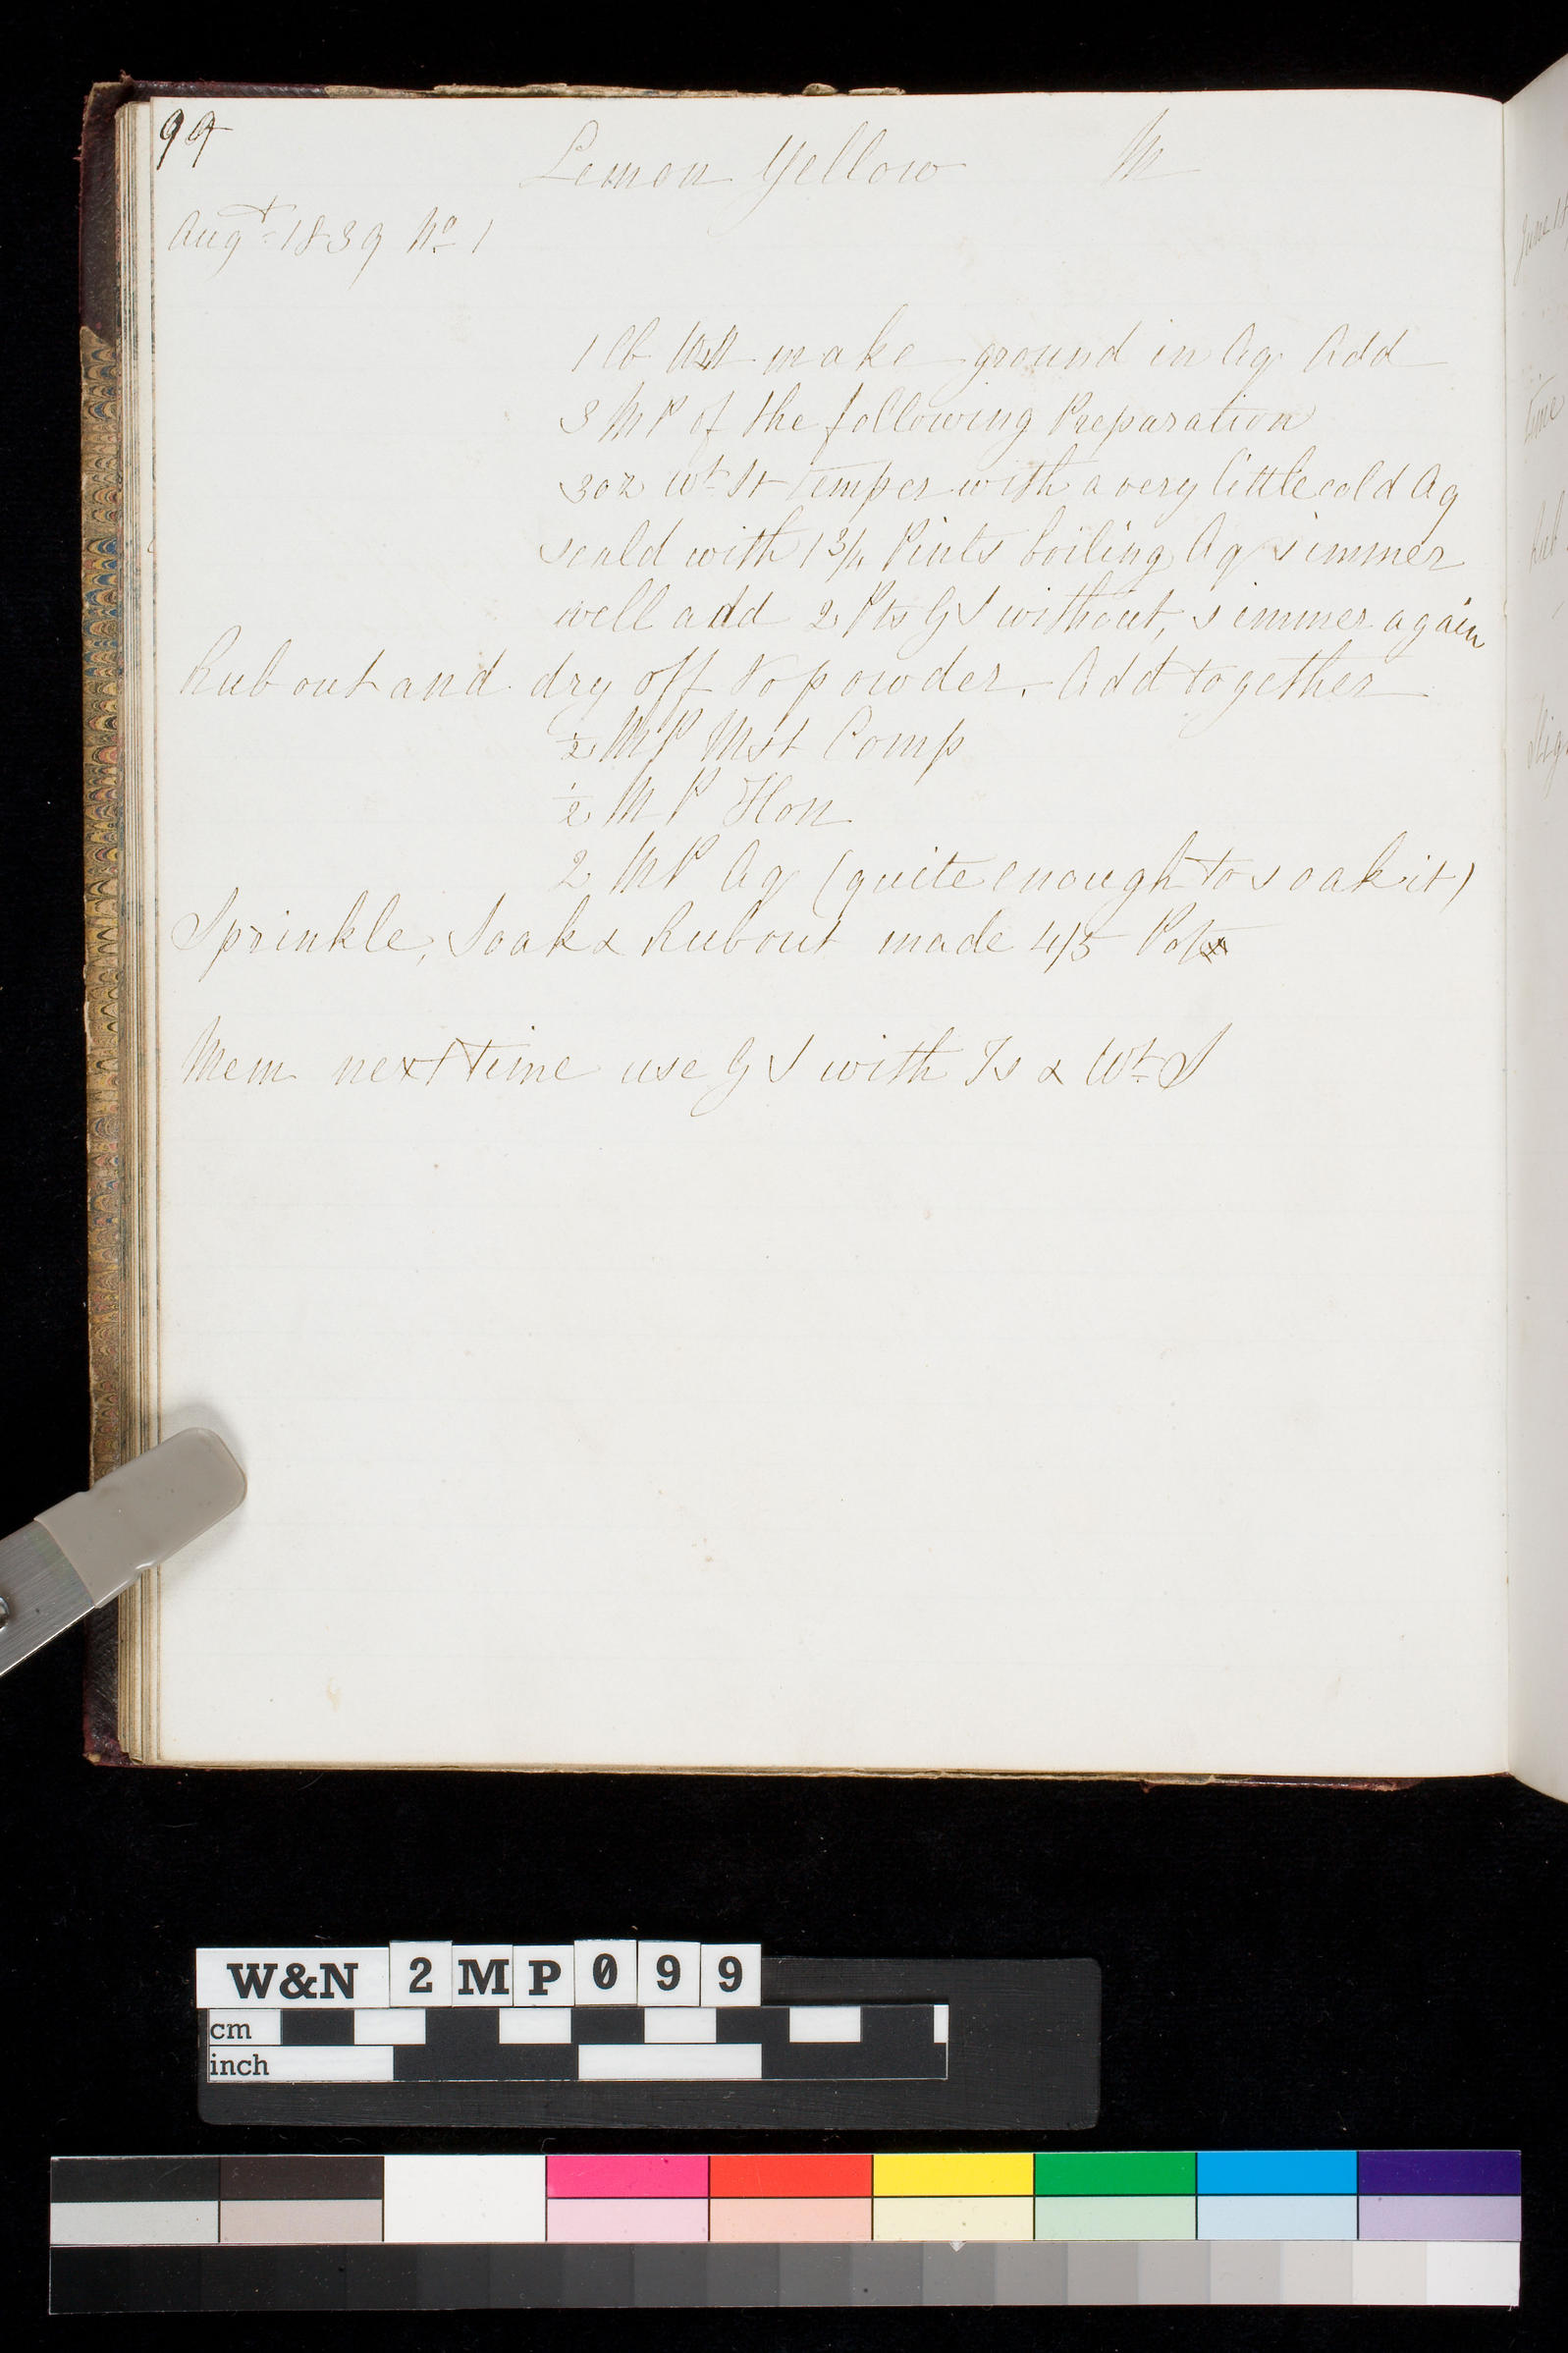 99
Lemon Yellow M
Augt 1839 No 1
1 lb make ground in Aq Add
3 MP of the following Preparation
3 oz Wt St temper with a very little cold Aq
scald with 1 3/4 Pints boiling Aq simmer
well add 2 Pts GS without, simmer again
Rub out and dry off to powder. Add together
1/2 MP Mst Comp
1/2 MP Hon
2 MP Aq (quite enough to soak it)
Sprinkle, Soak & Rub out made 45
Mem next time use GS with Is & Wt S
June 18
time
W&N 2MP099
cm
inch